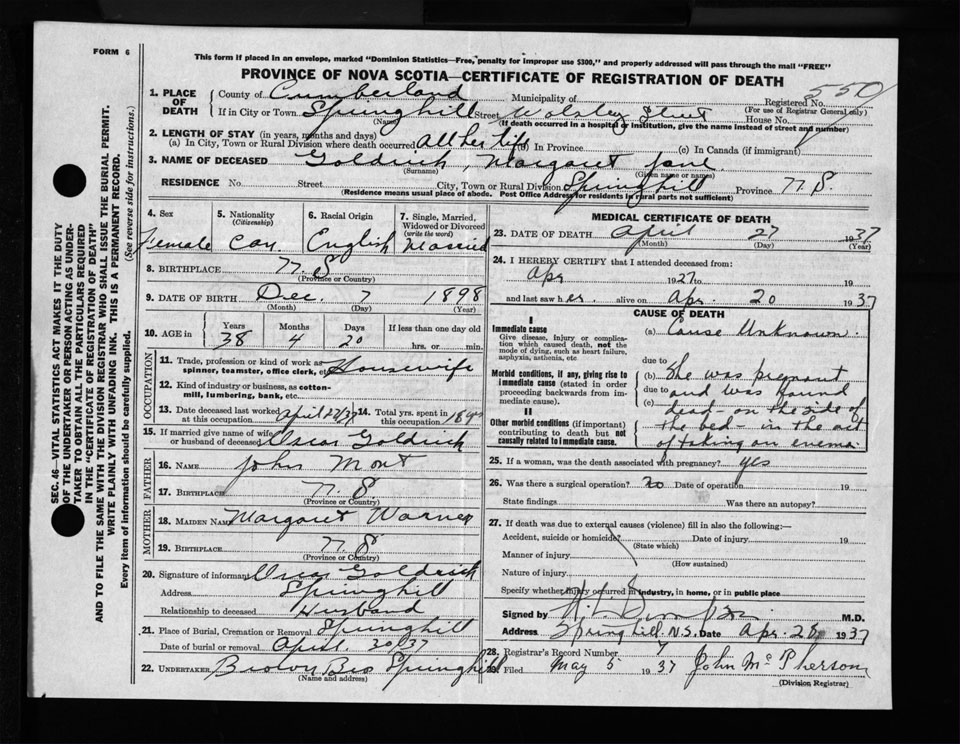 FORM 6
This form if placed in an envelope, marked "Dominion Statistics—Free, penalty for improper use $300," and properly addressed will pass through the mail "FREE"
PROVINCE OF NOVA SCOTIA—CERTIFICATE OF REGISTRATION OF DEATH
550
1. PLACE OF DEATH
County of Cumberland Municipality of Registered No.
(For use of Registrar General only)
If in City or Town Springhill Street Street House No.
(Name) (If death occurred in a hospital or institution, give the name instead of street and number)
2. LENGTH OF STAY (in years, months and days)
(a) In City, Town or Rural Division where death occurred all her life (b) In Province (c) In Canada (if immigrant)
3. NAME OF DECEASED Goldrich Margaret Jane
(Surname) (Given name or names)
RESIDENCE No. Street City, Town or Rural Division Springhill Province N.S.
(Residence means usual place of abode. Post Office Address for residents in rural parts not sufficient)
SEC. 46—VITAL STATISTICS ACT MAKES IT THE DUTY
OF THE UNDERTAKER OR PERSON ACTING AS UNDER-
TAKER TO OBTAIN ALL THE PARTICULARS REQUIRED
IN THE "CERTIFICATE OF REGISTRATION OF DEATH"
AND TO FILE THE SAME WITH THE DIVISION REGISTRAR WHO SHALL ISSUE THE BURIAL PERMIT.
WRITE PLAINLY WITH UNFADING INK. THIS IS A PERMANENT RECORD.
Every item of information should be carefully supplied. (See reverse side for instructions.)
4. Sex 5. Nationality (Citizenship) 6. Racial Origin 7. Single, Married, Widowed or Divorced (write the word)
Female Can. English Married
8. BIRTHPLACE N.S
(Province or Country)
9. DATE OF BIRTH Dec. 7 1898
(Month) (Day) (Year)
10. AGE in Years Months Days If less than one day old
38 4 20 hrs. or min.
OCCUPATION
11. Trade, profession or kind of work as spinner, teamster, office clerk, etc. Housewife
12. Kind of industry or business, as cotton-mill, lumbering, bank, etc.
13. Date deceased last worked at this occupation april 27/37 14. Total yrs. spent in this occupation 18 yrs
15. If married give name of wife or husband of deceased Oscar Goldrich
FATHER
16. NAME John Mont
17. BIRTHPLACE N.S.
MOTHER
18. MAIDEN NAME Margaret Warner
19. BIRTHPLACE N.S
(Province or Country)
20. Signature of informant Oscar Goldrich
Address Springhill
Relationship to deceased Husband
21. Place of Burial, Cremation or Removal Springhill
Date of burial or removal April 30/37
22. UNDERTAKER Brown Bro Springhill
(Name and address)
MEDICAL CERTIFICATE OF DEATH
23. DATE OF DEATH April 27 1937
(Month) (Day) (Year)
24. I HEREBY CERTIFY that I attended deceased from:
Apr 1927 to 19
and last saw her alive on Apr. 20 1937
CAUSE OF DEATH
I
Immediate cause
Give disease, injury or complication which caused death, not the mode of dying, such as heart failure, asphyxia, asthenia, etc
(a) Cause Unknown.
due to
Morbid conditions, if any, giving rise to immediate cause (stated in order proceeding backwards from immediate cause).
(b) She was pregnant
due to and was found
(c) dead - on the side of
II
Other morbid conditions (if important) contributing to death but not causally related to immediate cause.
the bed - in the act
of taking an enema.
25. If a woman, was the death associated with pregnancy? yes
26. Was there a surgical operation? no Date of operation 19
State findings Was there an autopsy?
27. If death was due to external causes (violence) fill in also the following:—
Accident, suicide or homicide? Date of injury 19
(State which)
Manner of injury
(How sustained)
Nature of injury
Specify whether injury occurred in industry, in home, or in public place
Signed by M.D.
Address Springhill, N.S. Date Apr. 28 1937
28. Registrar's Record Number
29. Filed May 5 1937 John McPherson
(Division Registrar)